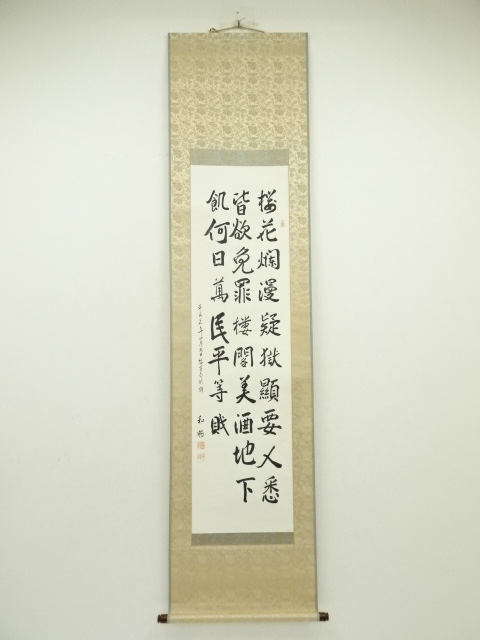 櫻花爛漫疑獄顯要人悉
皆欲免罪樓閣美酒地下
飢何日萬民平等賑